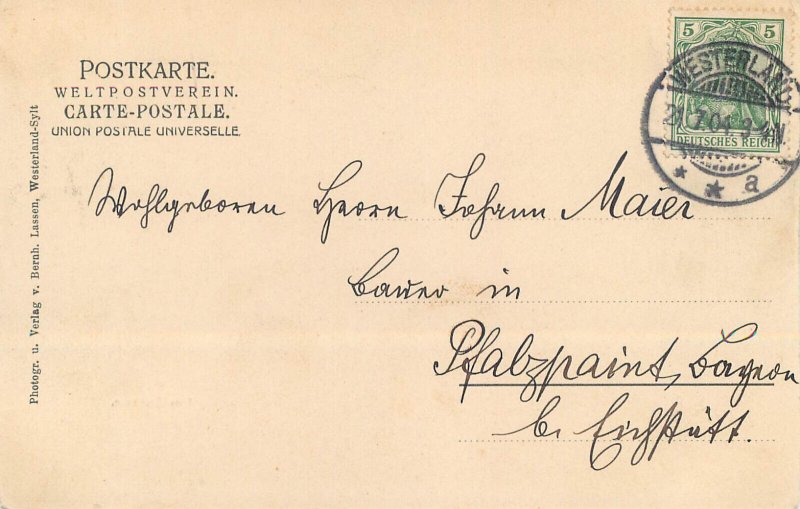 POSTKARTE.
WELTPOSTVEREIN.
CARTE-POSTALE.
UNION POSTALE UNIVERSELLE.
5 5
DEUTSCHES REICH
WESTERLAND
21.7.04. 3-4N.
* * a
Wohlgeboren Herrn Johann Maier
Bauer in
Pfalzpaint, Bayern
b. Eichstätt.
Photogr. u. Verlag v. Bernh. Lassen, Westerland-Sylt